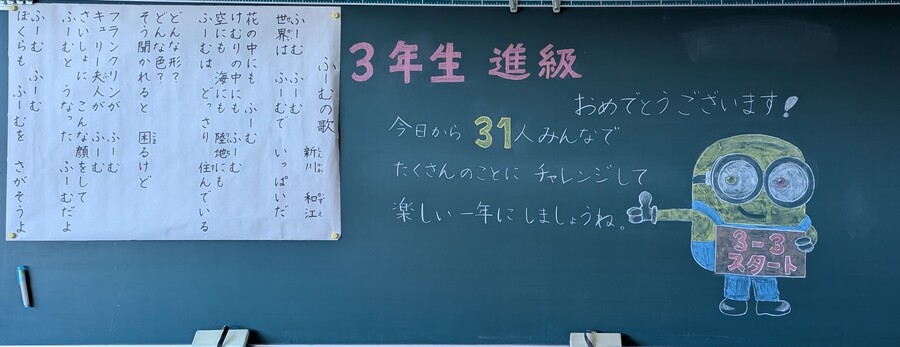 ふーむの歌
新川 和江
ふーむ ふーむ
世界は ふーむで いっぱいだ
花の中にも ふーむ
けむりの中にも ふーむ
空にも 海にも 陸地にも
ふーむは どっさり 住んでいる
どんな形?
どんな色?
そう聞かれると 困るけど
フランクリンが ふーむ
キュリー夫人が ふーむ
さいしょに こんな顔をして
ふーむと うなった ふーむだよ
ふーむ ふーむ
ぼくらも ふーむを さがそうよ
3年生 進級
おめでとうございます!
今日から 31人みんなで
たくさんのことに チャレンジして
楽しい一年にしましょうね。
3-3
スタート